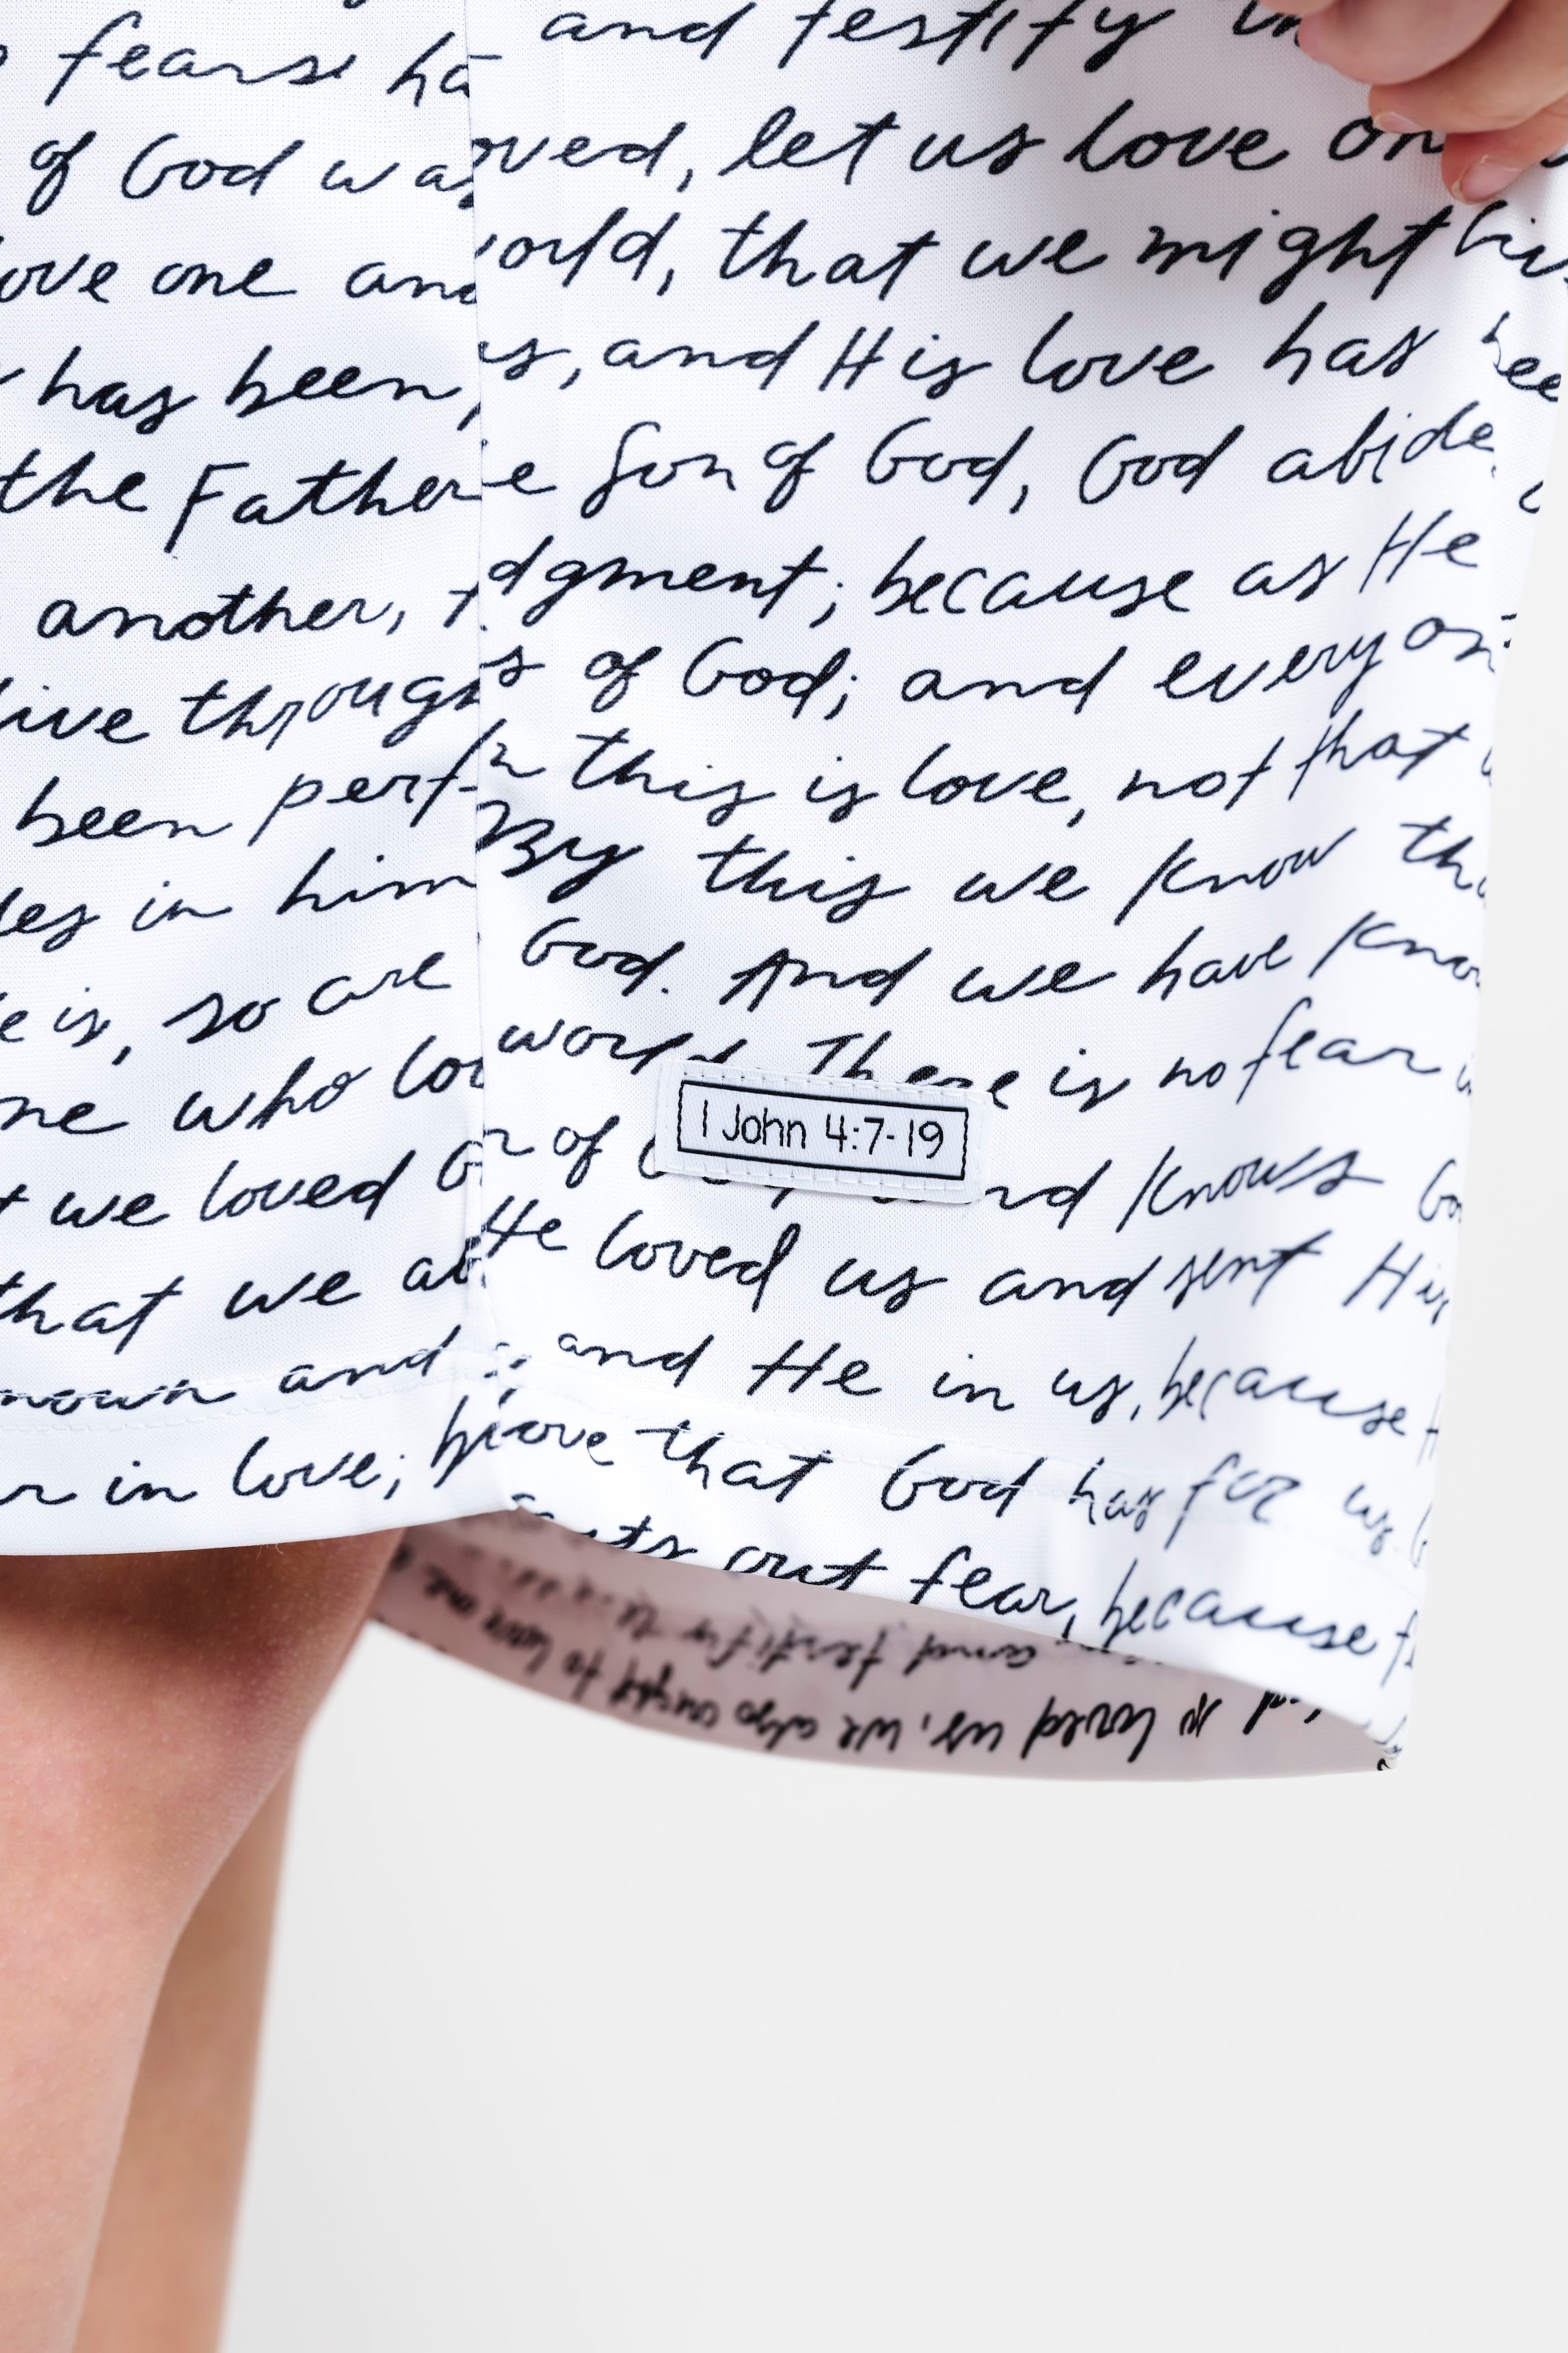 fears ha
of God was
ove one and
has been
the Father
another, t
live through
been perf
des in him
e is, so are
ne who lo
t we loved G
that we ab
nown and
r in love;
and testify
oved, let us love on
orld, that we might liv
us, and His love has bee
e Son of God, God abide
dgment; because as He
s of God; and every on
n this is love, not that
By this we know tha
God. And we have kno
world. There is no fear
1 John 4:7-19
n of nd knows Go
He loved us and sent His
and He in us, because
that God has for us
ts out fear, because f
and testify
loved us, we also ought to love one